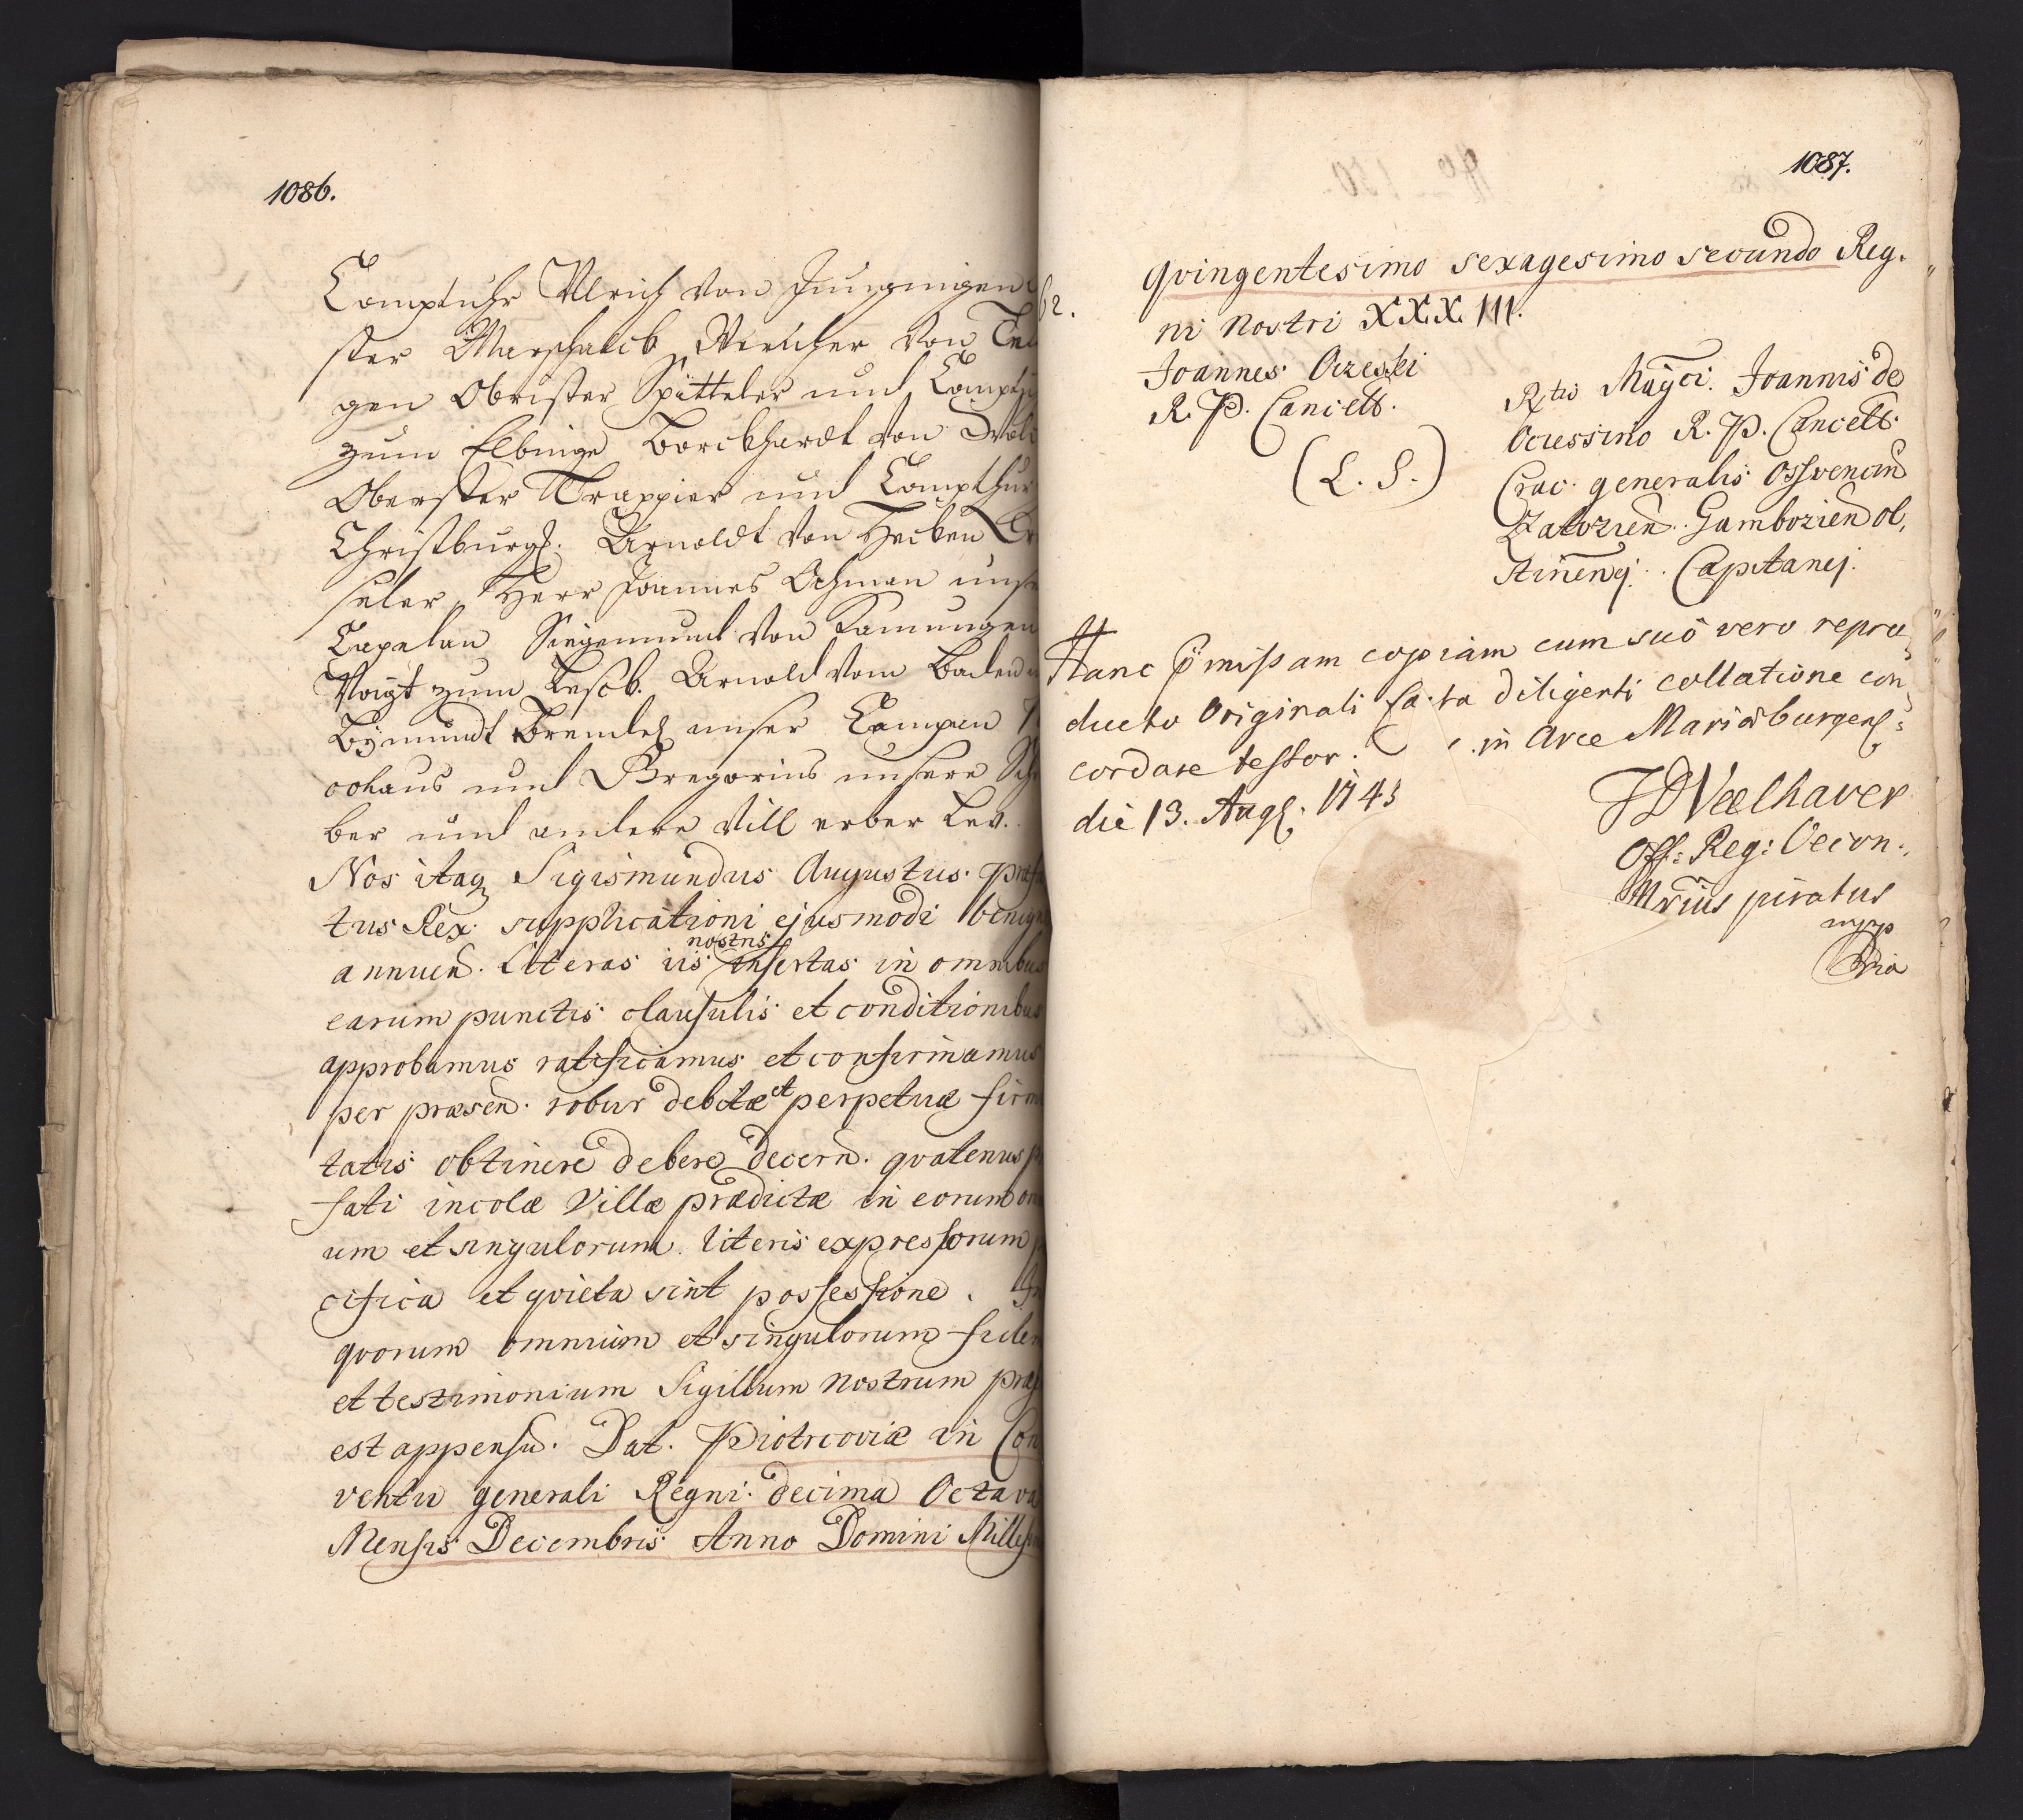 1086.
Compthur Ulrich von Jungingen
ster Marschalck Wericher von Tet
gen Obrister Spitteler und Compth
zum Elbinge Borckhardt von Wob
Oberster Trappier und Compthur
Christburg. Arnoldt von Hecken
seler, Herr Joannes Ochman unse
Capelan Siegemundt von Ramungen
Voigt zum Lesck. Arnold vom Baden
Bÿmundt Brendel unser Compan
ochaus und Gregorius unsere Schr
ber und andere vill erber Leu.
Nos itaq Sigismundus Augustus. Præfa
tus Rex. supplicationi ejusmodi benig
annuen. Literas iis nostris insertas in omnibus
earum punctis clausulis et conditionibus
approbamus ratificamus et confirmamus
per præsen. robur debitæ et perpetuæ firm
tatis obtinere debere decern. qvatenus
fati incolæ Villæ prædictæ in eorum om
um et singulorum literis expressorum
cifica et qvieta sint possessione. In
qvorum omnium et singulorum fidem
et testimonium Sigillum nostrum præs
est appensu. Dat. Piotrcoviæ in Con
ventu generali Regni. decima Octava
Mensis Decembris Anno Domini Millesim
1087.
62.
qvingentesimo sexagesimo secundo Reg.
ni nostri XXXIII.
Joannes Oczeski
R. P. Cancell.
(L. S.)
Rtio Magci. Joannis de
Ocziessino R. P. Cancell.
Crac. generalis Osswencin
Zatorien. Samborien ol,
stinenq. Capitanej.
Hanc pmissam copiam cum suô vero repro
ducto Originali facta diligenti collatione con
cordare testor. in Arce Mariæburgens:
die 13. Augs. 1743
JDVeelhaver
Off: Reg: Oecon.
Nrius juratus
mpp